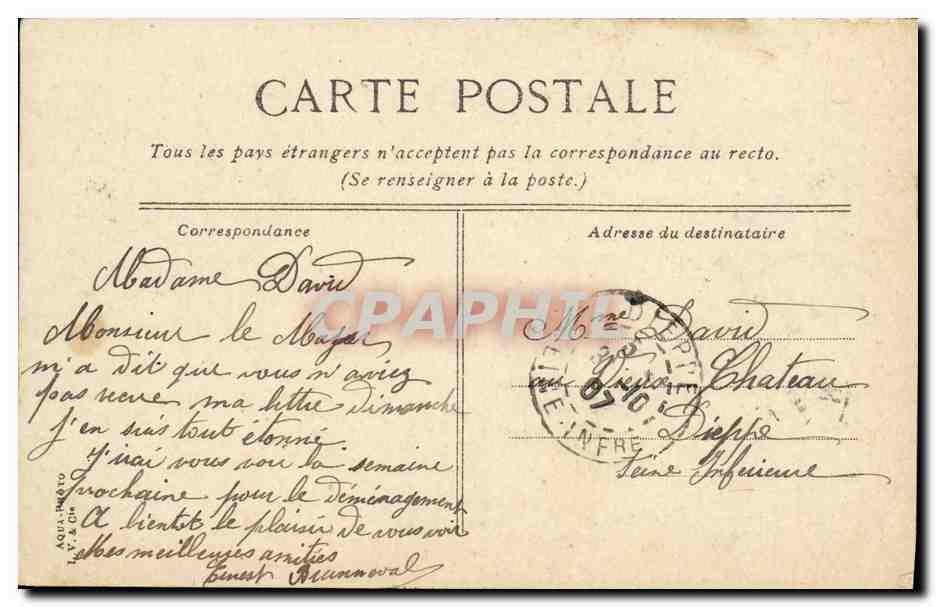 CARTE POSTALE
Tous les pays étrangers n'acceptent pas la correspondance au recto.
(Se renseigner à la poste.)
Correspondance
Madame David
Monsieur le Major
m'a dit que vous n'aviez
pas recue ma lettre dimanche
j'en suis tout étonné
J'irai vous voir la semaine
prochaine pour le déménagement
A bientot le plaisir de vous voir
Mes meilleures amitiés
Ernest
AQUA-PHOTO
L. V. & Cie
Adresse du destinataire
Mme David
au Vieux Chateau
Dieppe
Seine Inferieure
DIEPPE
10
07
INFRE
CPAPHIL